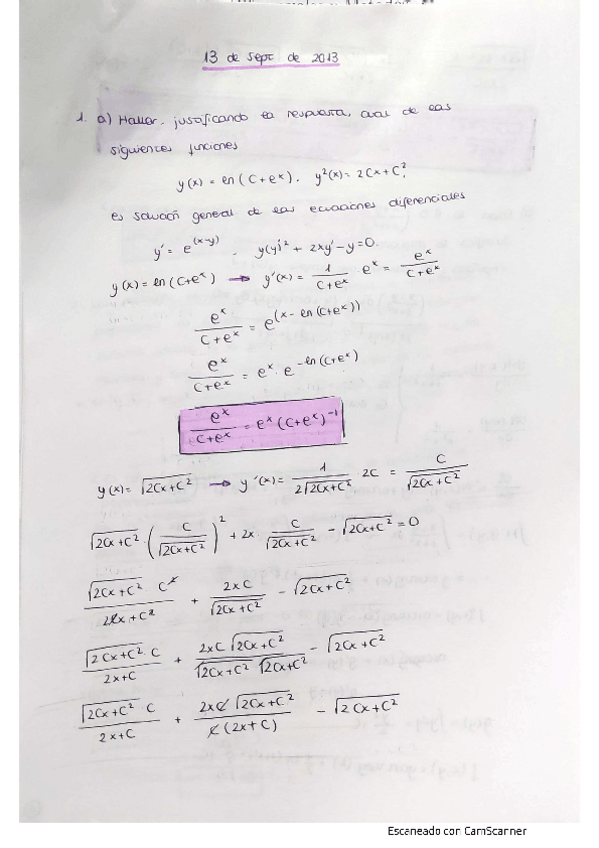 13 de Sept de 2013
1. a) Hallar, justificando la respuesta, cual de las
siguientes funciones
y(x) = ln(C+eˣ), y²(x) = 2Cx + C²,
es solución general de las ecuaciones diferenciales
y' = e^(x-y) , y(y')² + 2xy' - y = 0.
y(x) = ln(C+eˣ) → y'(x) = 1/(C+eˣ) eˣ = eˣ/(C+eˣ)
eˣ/(C+eˣ) = e^(x - ln(C+eˣ))
eˣ/(C+eˣ) = eˣ · e^(-ln(C+eˣ))
eˣ/(C+eˣ) = eˣ (C+eˣ)⁻¹
y(x) = √(2Cx+C²) → y'(x) = 1/(2√(2Cx+C²)) 2C = C/√(2Cx+C²)
√(2Cx+C²) · (C/√(2Cx+C²))² + 2x · C/√(2Cx+C²) - √(2Cx+C²) = 0
(√(2Cx+C²) · C²)/(2Cx+C²) + 2xC/√(2Cx+C²) - √(2Cx+C²)
(√(2Cx+C²) · C)/(2x+C) + (2xC √(2Cx+C²))/(√(2Cx+C²) √(2Cx+C²)) - √(2Cx+C²)
(√(2Cx+C²) · C)/(2x+C) + (2xC √(2Cx+C²))/(C(2x+C)) - √(2Cx+C²)
Escaneado con CamScanner